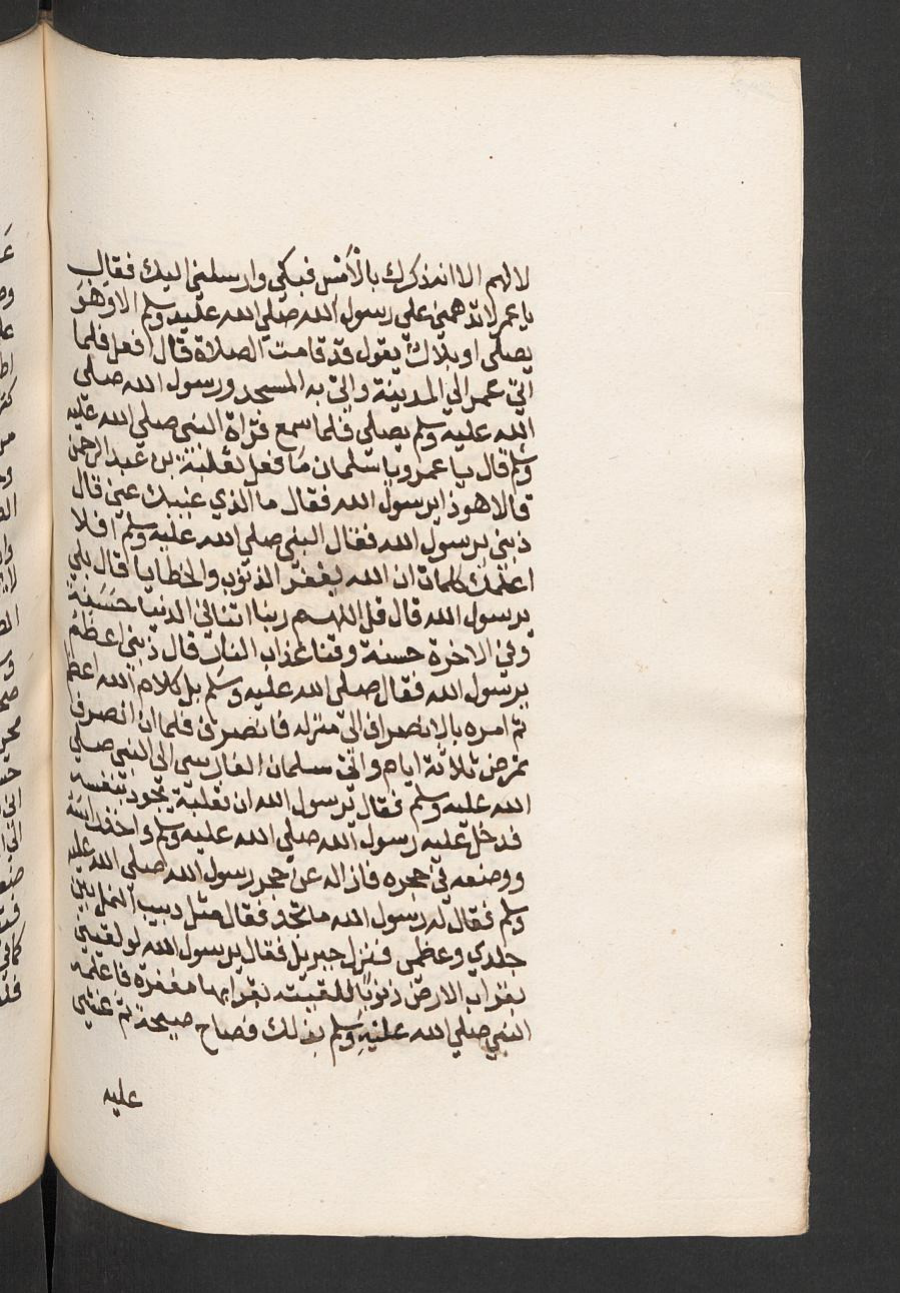 لا لهم الا انه ذكرك بالأمس فبكي وارسلني اليك فقال
يا عمر لا تدهمني علي رسول الله صلي الله عليه وسلم الا وهو
يصلي او بلال يقول قد قامت الصلاة قال افعل فلما
اتي عمر الي المدينة واتي به المسجد ورسول الله صلي
الله عليه وسلم يصلي فلما سمع قراة النبي صلي الله عليه
وسلم قال يا عمر ويا سلمان ما فعل ثعلبة بن عبد الرحمن
قالا هو ذا يرسول الله فقال ما الذي غيبك عني قال
ذنبي يرسول الله فقال النبي صلي الله عليه وسلم افلا
اعلمك كلمات ان الله يغفر الذنوب والخطايا قال بلي
يرسول الله قال قل اللهم ربنا اتنا في الدنيا حسنة
وفي الاخرة حسنة وقنا عذاب النار قال ذنبي اعظم
يرسول الله فقال صلي الله عليه وسلم بل كلام الله اعظم
ثم امره بالانصراف الي منزله فانصرف فلما ان انصرف
تمرض ثلاثة ايام واتي سلمان الفارسي الي النبي صلي
الله عليه وسلم فقال يرسول الله ان ثعلبة يجود بنفسه
فدخل عليه رسول الله صلي الله عليه وسلم واخذ راسه
ووضعه في حجره فازاله عن حجر رسول الله صلي الله عليه
وسلم فقال له رسول الله ما تجد فقال مثل دبيب النمل بين
جلدي وعظمي فنزل جبريل فقال يرسول الله لو لقيني
بقراب الارض ذنوبا للقيته بقرابها مغفرة فاعلمه
النبي صلي الله عليه وسلم بذلك فصاح صيحة ثم غشي
عليه